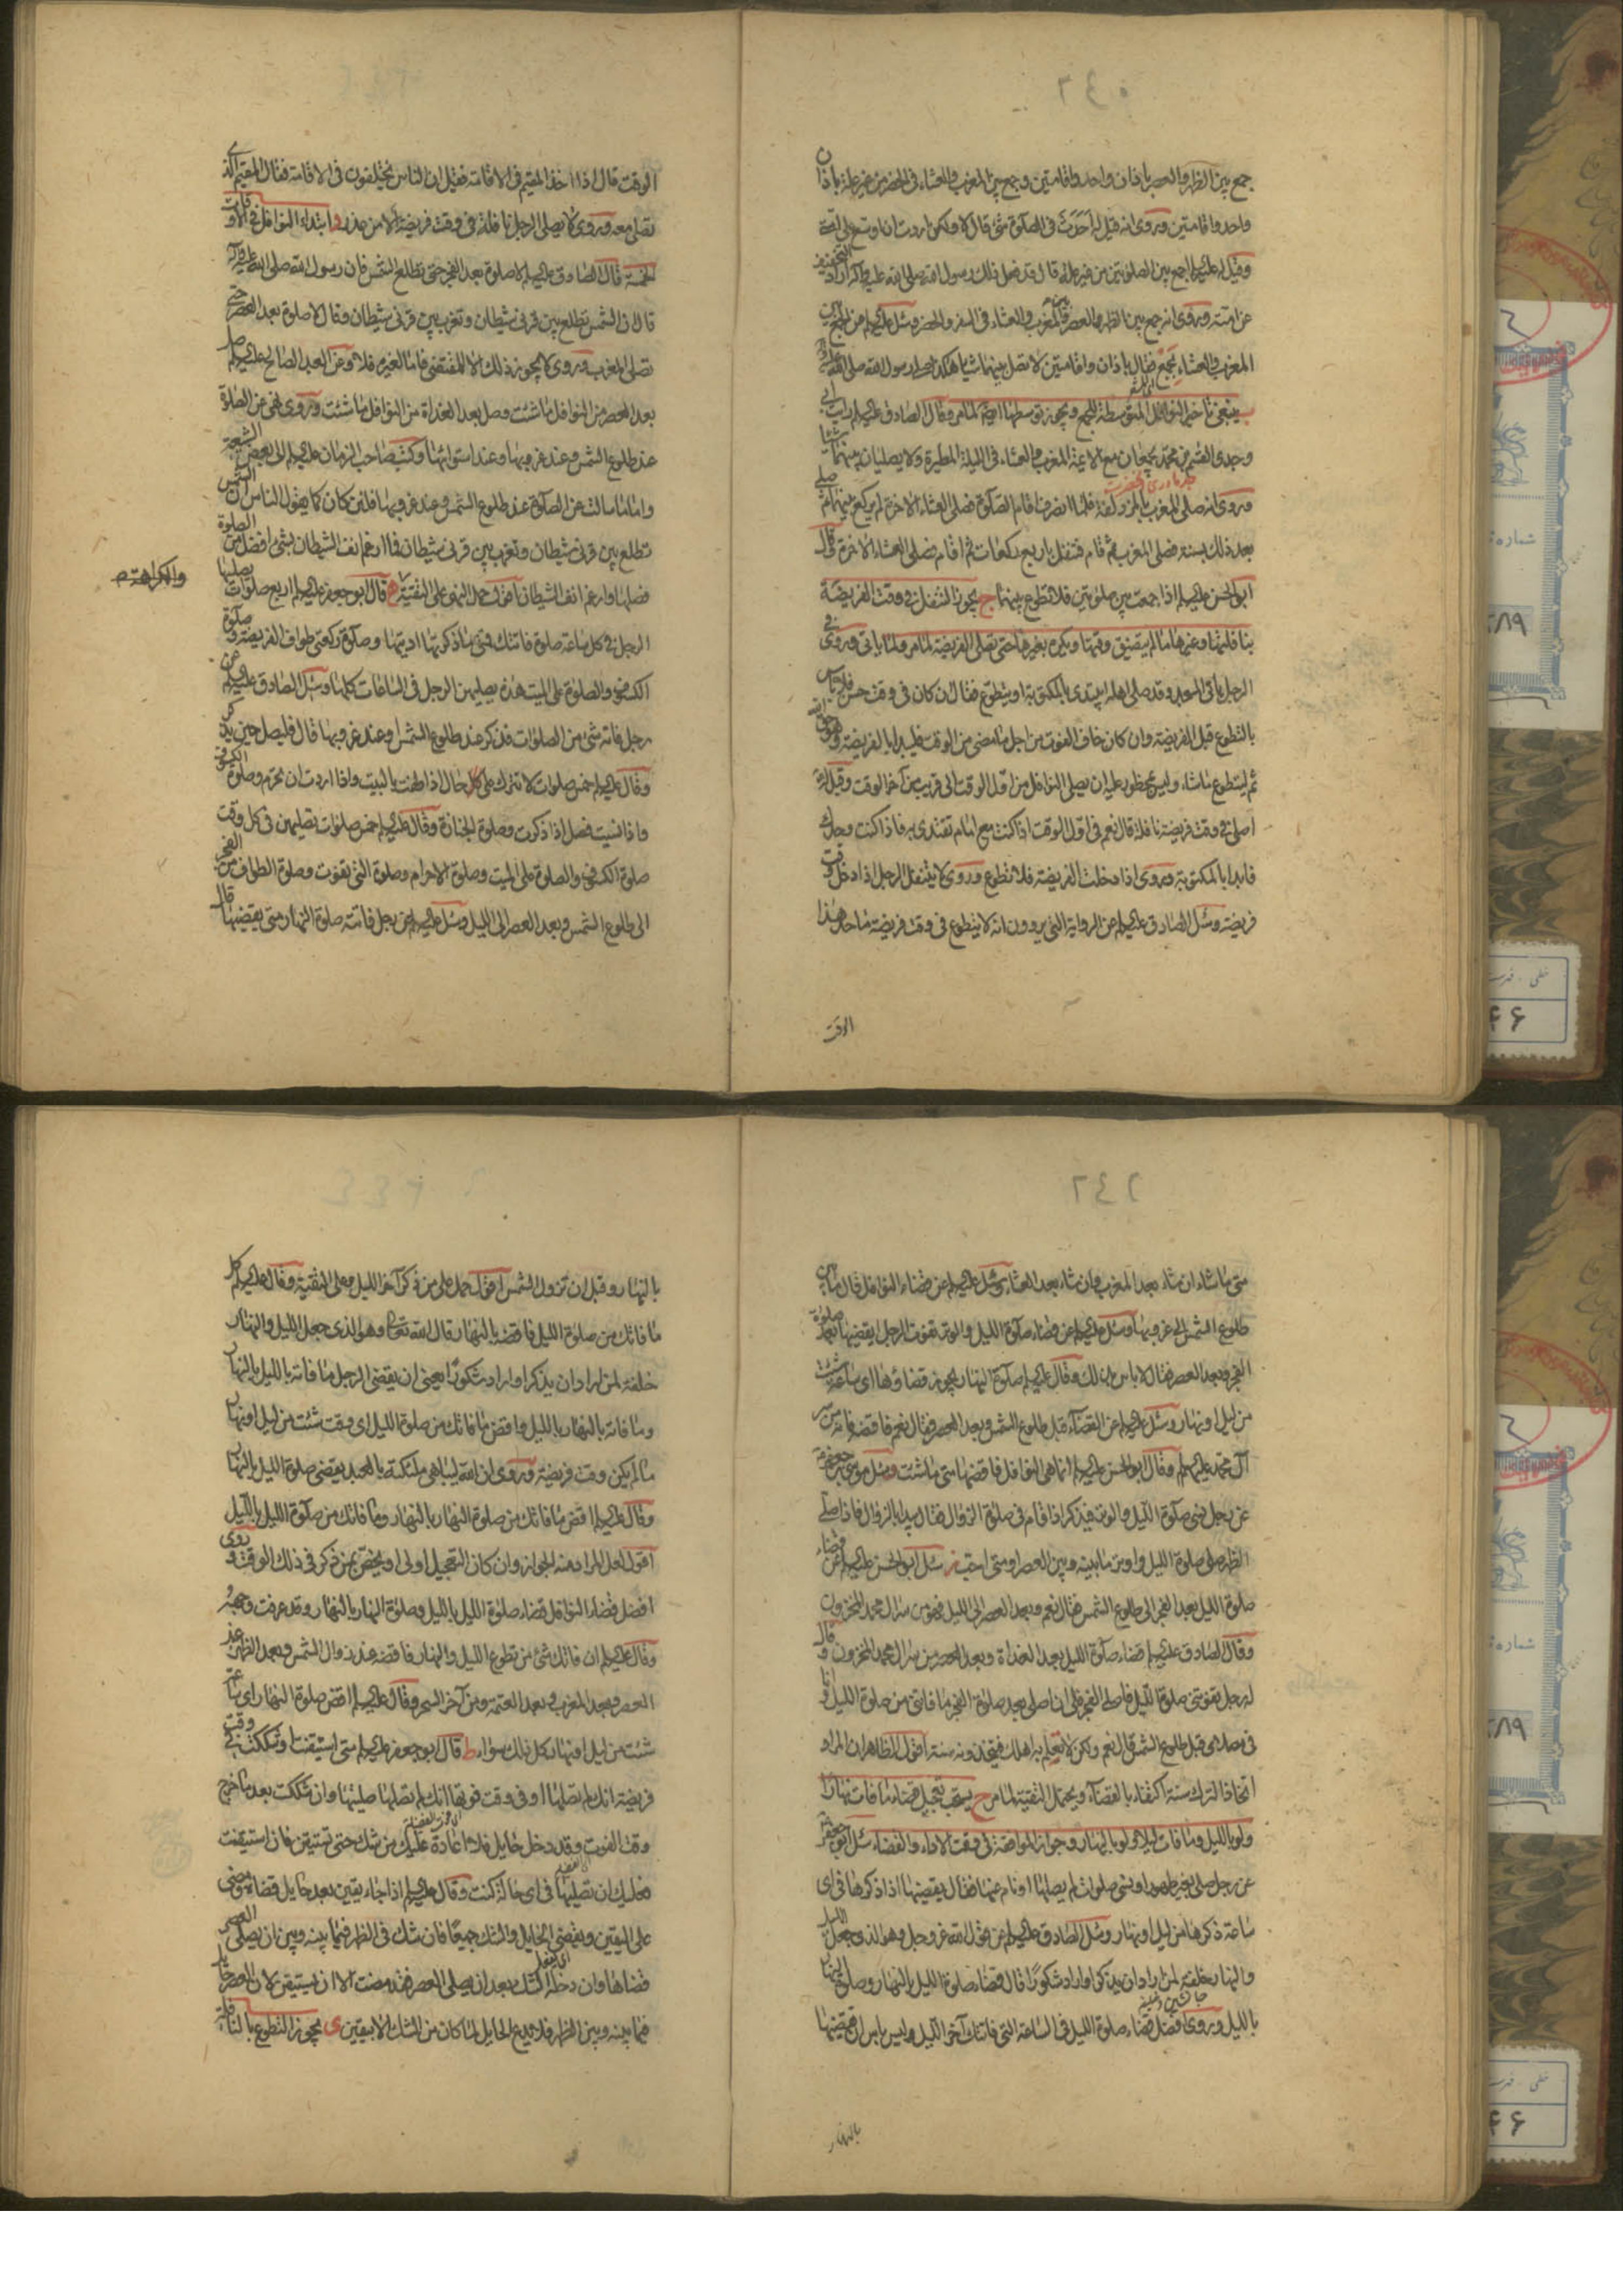 جمع بين الظهر والعصر باذان واحد واقامتين وجمع بين المغرب والعشاء فى الحضر من غير علة باذان
واحد واقامتين وروى انه قيل له احدث فى الصلوة شئ قال لا ولكن اردت ان اوسع على امتى
وقيل له عليه السلم اجمع بين الصلوتين من غير علة قال قد فعل ذلك رسول الله صلى الله عليه وآله اراد التخفيف
عن امته وروى انه جمع بين الظهر والعصر والمغرب والعشاء فى السفر والحضر وسئل عليه السلم عن الجمع بين
المغرب والعشاء بجمع فقال باذان واقامتين لا تصل بينهما شيئا هكذا صلى رسول الله صلى الله عليه وآله
ب ينبغى تاخير النوافل المتوسطة للجمع ويجوز توسطها ايضا لما مر وقال الصادق عليه السلم رايت ابى
وجدى القسم بن محمد يجمعان مع الائمة المغرب والعشاء فى الليلة المطيرة ولا يصليان بينهما شيئا
وروى انه صلى المغرب بالمزدلفة فلما انصرف اقام الصلوة فصلى العشاء الاخرة لم يركع بينهما ثم صلى
بعد ذلك بسنة فصلى المغرب ثم قام فتنفل باربع ركعات ثم اقام فصلى العشاء الاخرة وقال
ابو الحسن عليه السلم اذا جمعت بين صلوتين فلا تطوع بينهما ج يجوز التنفل فى وقت الفريضة
بنافلتها وغيرها ما لم يتضيق وقتها ويكره بغيرها حتى يصلى الفريضة لما مر ولما ياتى وروى فى
الرجل ياتى المسجد وقد صلى اهله ايبتدى بالمكتوبة او يتطوع فقال ان كان فى وقت حسن فلا باس
بالتطوع قبل الفريضة وان كان خاف الفوت من اجل ما مضى من الوقت فليبدا بالفريضة وهو حق الله
ثم ليتطوع ما شاء وليس بمحظور عليه ان يصلى النوافل من اول الوقت الى قريب من آخر الوقت وقيل له
اصلى فى وقت فريضة نافلة قال نعم فى اول الوقت اذا كنت مع امام تقتدى به فاذا كنت وحدك
فابدا بالمكتوبة وروى اذا دخلت الفريضة فلا تطوع وروى لا يتنفل الرجل اذا دخل وقت
فريضة وسئل الصادق عليه السلم عن الرواية التى يروون انه لا يتطوع فى وقت فريضة ما حد هذا
الوقت
الوقت قال اذا اخذ المقيم فى الاقامة فقيل ان الناس يختلفون فى الاقامة فقال المقيم الذى
تصلى معه وروى لا يصلى الرجل نافلة فى وقت فريضة الا من عذر د ابتداء النوافل فى الاوقات
الخمسة قال الصادق عليه السلم لا صلوة بعد الفجر حتى تطلع الشمس فان رسول الله صلى الله عليه وآله
قال ان الشمس تطلع بين قرنى شيطان وتغرب بين قرنى شيطان وقال لا صلوة بعد العصر حتى
تصلى المغرب وروى لا يجوز ذلك الا للمقتضى فاما لغيره فلا وعن العبد الصالح عليه السلم صل
بعد العصر من النوافل ما شئت وصل بعد الغداة من النوافل ما شئت وروى نهى عن الصلوة
عند طلوع الشمس وعند غروبها وعند استوائها وكتب صاحب الزمان عليه السلم الى بعض الشيعة
واما ما سالت عن الصلوة عند طلوع الشمس وعند غروبها فلئن كان كما يقول الناس ان الشمس
تطلع بين قرنى شيطان وتغرب بين قرنى شيطان فما ارغم انف الشيطان بشئ افضل من الصلوة
فصلها وارغم انف الشيطان اقول حمل النهى على التقية ه قال ابو جعفر عليه السلم اربع صلوات يصليها
والكراهة م
الرجل فى كل ساعة صلوة فاتتك فمتى ما ذكرتها اديتها وصلوة ركعتى طواف الفريضة وصلوة
الكسوف والصلوة على الميت هذه يصليهن الرجل فى الساعات كلها وسئل الصادق عليه السلم عن
رجل فاته شئ من الصلوات فذكر عند طلوع الشمس او عند غروبها قال فليصل حين يذكر
وقال عليه السلم خمس صلوات لا تترك على كل حال اذا طفت بالبيت واذا اردت ان تحرم وصلوة الكسوف
واذا نسيت فصل اذا ذكرت وصلوة الجنازة وقال عليه السلم خمس صلوات تصليهن فى كل وقت
صلوة الكسوف والصلوة على الميت وصلوة الاحرام وصلوة التى تفوت وصلوة الطواف من الفجر
الى طلوع الشمس وبعد العصر الى الليل وسئل عليه السلم عن رجل فاتته صلوة النهار متى يقضيها قال
متى ما شاء ان شاء بعد المغرب وان شاء بعد العشاء وسئل عليه السلم عن قضاء النوافل قال ما بين
طلوع الشمس الى غروبها وسئل عليه السلم عن قضاء صلوة الليل والوتر تفوت الرجل ايقضيها بعد صلوة
الفجر وبعد العصر فقال لا باس بذلك وقال عليه السلم صلوة النهار يجوز قضاؤها اى ساعة شئت
من ليل او نهار وسئل عليه السلم عن القضاء قبل طلوع الشمس وبعد العصر فقال نعم فاقضه فانه من سر
آل محمد عليهم السلم وقال ابو الحسن عليه السلم انما هى النوافل فاقضها متى ما شئت وسئل موسى بن جعفر
عن رجل نسى صلوة الليل والوتر فيذكر اذا قام فى صلوة الزوال فقال يبدا بالزوال فاذا صلى
الظهر صلى صلوة الليل واوتر ما بينه وبين العصر او متى احب ز سئل ابو الحسن عليه السلم عن قضاء
صلوة الليل بعد الفجر الى طلوع الشمس فقال نعم وبعد العصر الى الليل فهو من سر آل محمد المخزون
وقال الصادق عليه السلم قضاء صلوة الليل بعد الغداة وبعد العصر من سر آل محمد المخزون وقال
له رجل تفوتنى صلوة الليل فاصلى الفجر فلى ان اصلى بعد صلوة الفجر ما فاتنى من صلوة الليل وانا
فى مصلاى قبل طلوع الشمس قال نعم ولكن لا تعلم به اهلك فيتخذونه سنة اقول الظاهر ان المراد
اتخاذ الترك سنة اكتفاء بالقضاء ويحتمل التقية لما مر ح يستحب تعجيل قضاء ما فات نهارا
ولو بالليل وما فات ليلا ولو بالنهار وجواز المواضعة فى وقت الاداء والقضاء سئل ابو جعفر
عن رجل صلى بغير طهور او نسى صلوات لم يصلها او نام عنها فقال يقضيها اذا ذكرها فى اى
ساعة ذكرها من ليل او نهار وسئل الصادق عليه السلم عن قول الله عز وجل وهو الذى جعل الليل
والنهار خلفة لمن اراد ان يذكر او اراد شكورا قال قضاء صلوة الليل بالنهار وصلوة النهار
بالليل وروى افضل قضاء صلوة الليل فى الساعة التى فاتتك آخر الليل وليس باس ان تقضيها
بالنهار
بالنهار وقبل ان تزول الشمس اقول حمل على من ذكر آخر الليل وعلى التقية وقال عليه السلم كل
ما فاتك من صلوة الليل فاقضه بالنهار قال الله تعالى وهو الذى جعل الليل والنهار
خلفة لمن اراد ان يذكر او اراد شكورا يعنى ان يقضى الرجل ما فاته بالليل بالنهار
وما فاته بالنهار بالليل واقض ما فاتك من صلوة الليل اى وقت شئت من ليل او نهار
ما لم يكن وقت فريضة وروى ان الله ليباهى ملئكته بالعبد يقضى صلوة الليل بالنهار
وقال عليه السلم اقض ما فاتك من صلوة النهار بالنهار وما فاتك من صلوة الليل بالليل
اقول لعل المراد منه الجواز وان كان التعجيل اولى او يختص بمن ذكر فى ذلك الوقت وروى
افضل قضاء النوافل قضاء صلوة الليل بالليل وصلوة النهار بالنهار وقد عرفت وجهه
وقال عليه السلم ان فاتك شئ من تطوع الليل والنهار فاقضه عند زوال الشمس وبعد الظهر عند
العصر وبعد المغرب وبعد العتمة ومن آخر السحر وقال عليه السلم اقض صلوة النهار اى ساعة
شئت من ليل او نهار كل ذلك سواء ط قال ابو جعفر عليه السلم متى استيقنت او شككت فى وقت
فريضة انك لم تصلها او فى وقت فوتها انك لم تصلها صليتها وان شككت بعد ما خرج
وقت الفوت وقد دخل حايل فلا اعادة عليك من شك حتى تستيقن فان استيقنت
فعليك ان تصليها فى اى حالة كنت وقال عليه السلم اذا جاء يقين بعد حايل قضاه ومضى
على اليقين ويقضى الحايل والشك جميعا فان شك فى الظهر فيما بينه وبين ان يصلى العصر
قضاها وان دخله الشك بعد ان يصلى العصر فقد مضت الا ان يستيقن لان العصر حايل
فيما بينه وبين الظهر فلا يدع الحايل لما كان من الشك الا بيقين ى يجوز التطوع بالنافلة